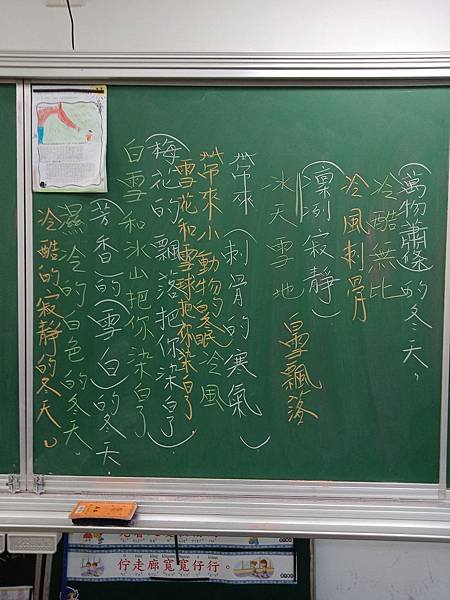 (萬物蕭條)的冬天，
冷酷無比
冷風刺骨
(凜冽寂靜)
冰天雪地
白雪飄落
帶來(刺骨的寒氣)
帶來小動物的冬眠
冷風
雪花和雪球把你染白了.
(梅花的)飄落把你染白了
白雪和冰山把你染白了
(芳香)的(雪白)的冬天.
濕冷的白色的冬天.
冷酷的寂靜的冬天。
佇走廊寬寬仔行。